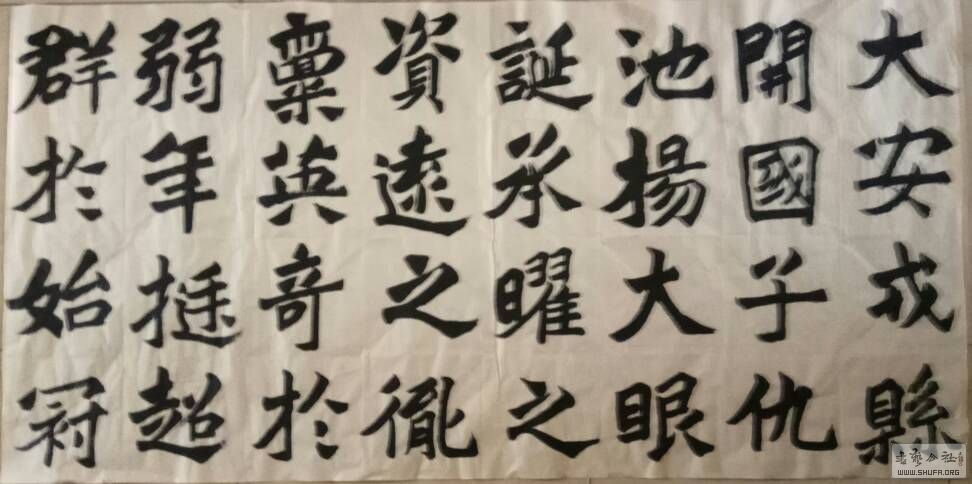 大安戎縣
開國子仇
池楊大眼
誕承曜之
資遠之胤
稟英奇於
弱年挺超
群於始冠
书艺公社
WWW.SHUFA.ORG